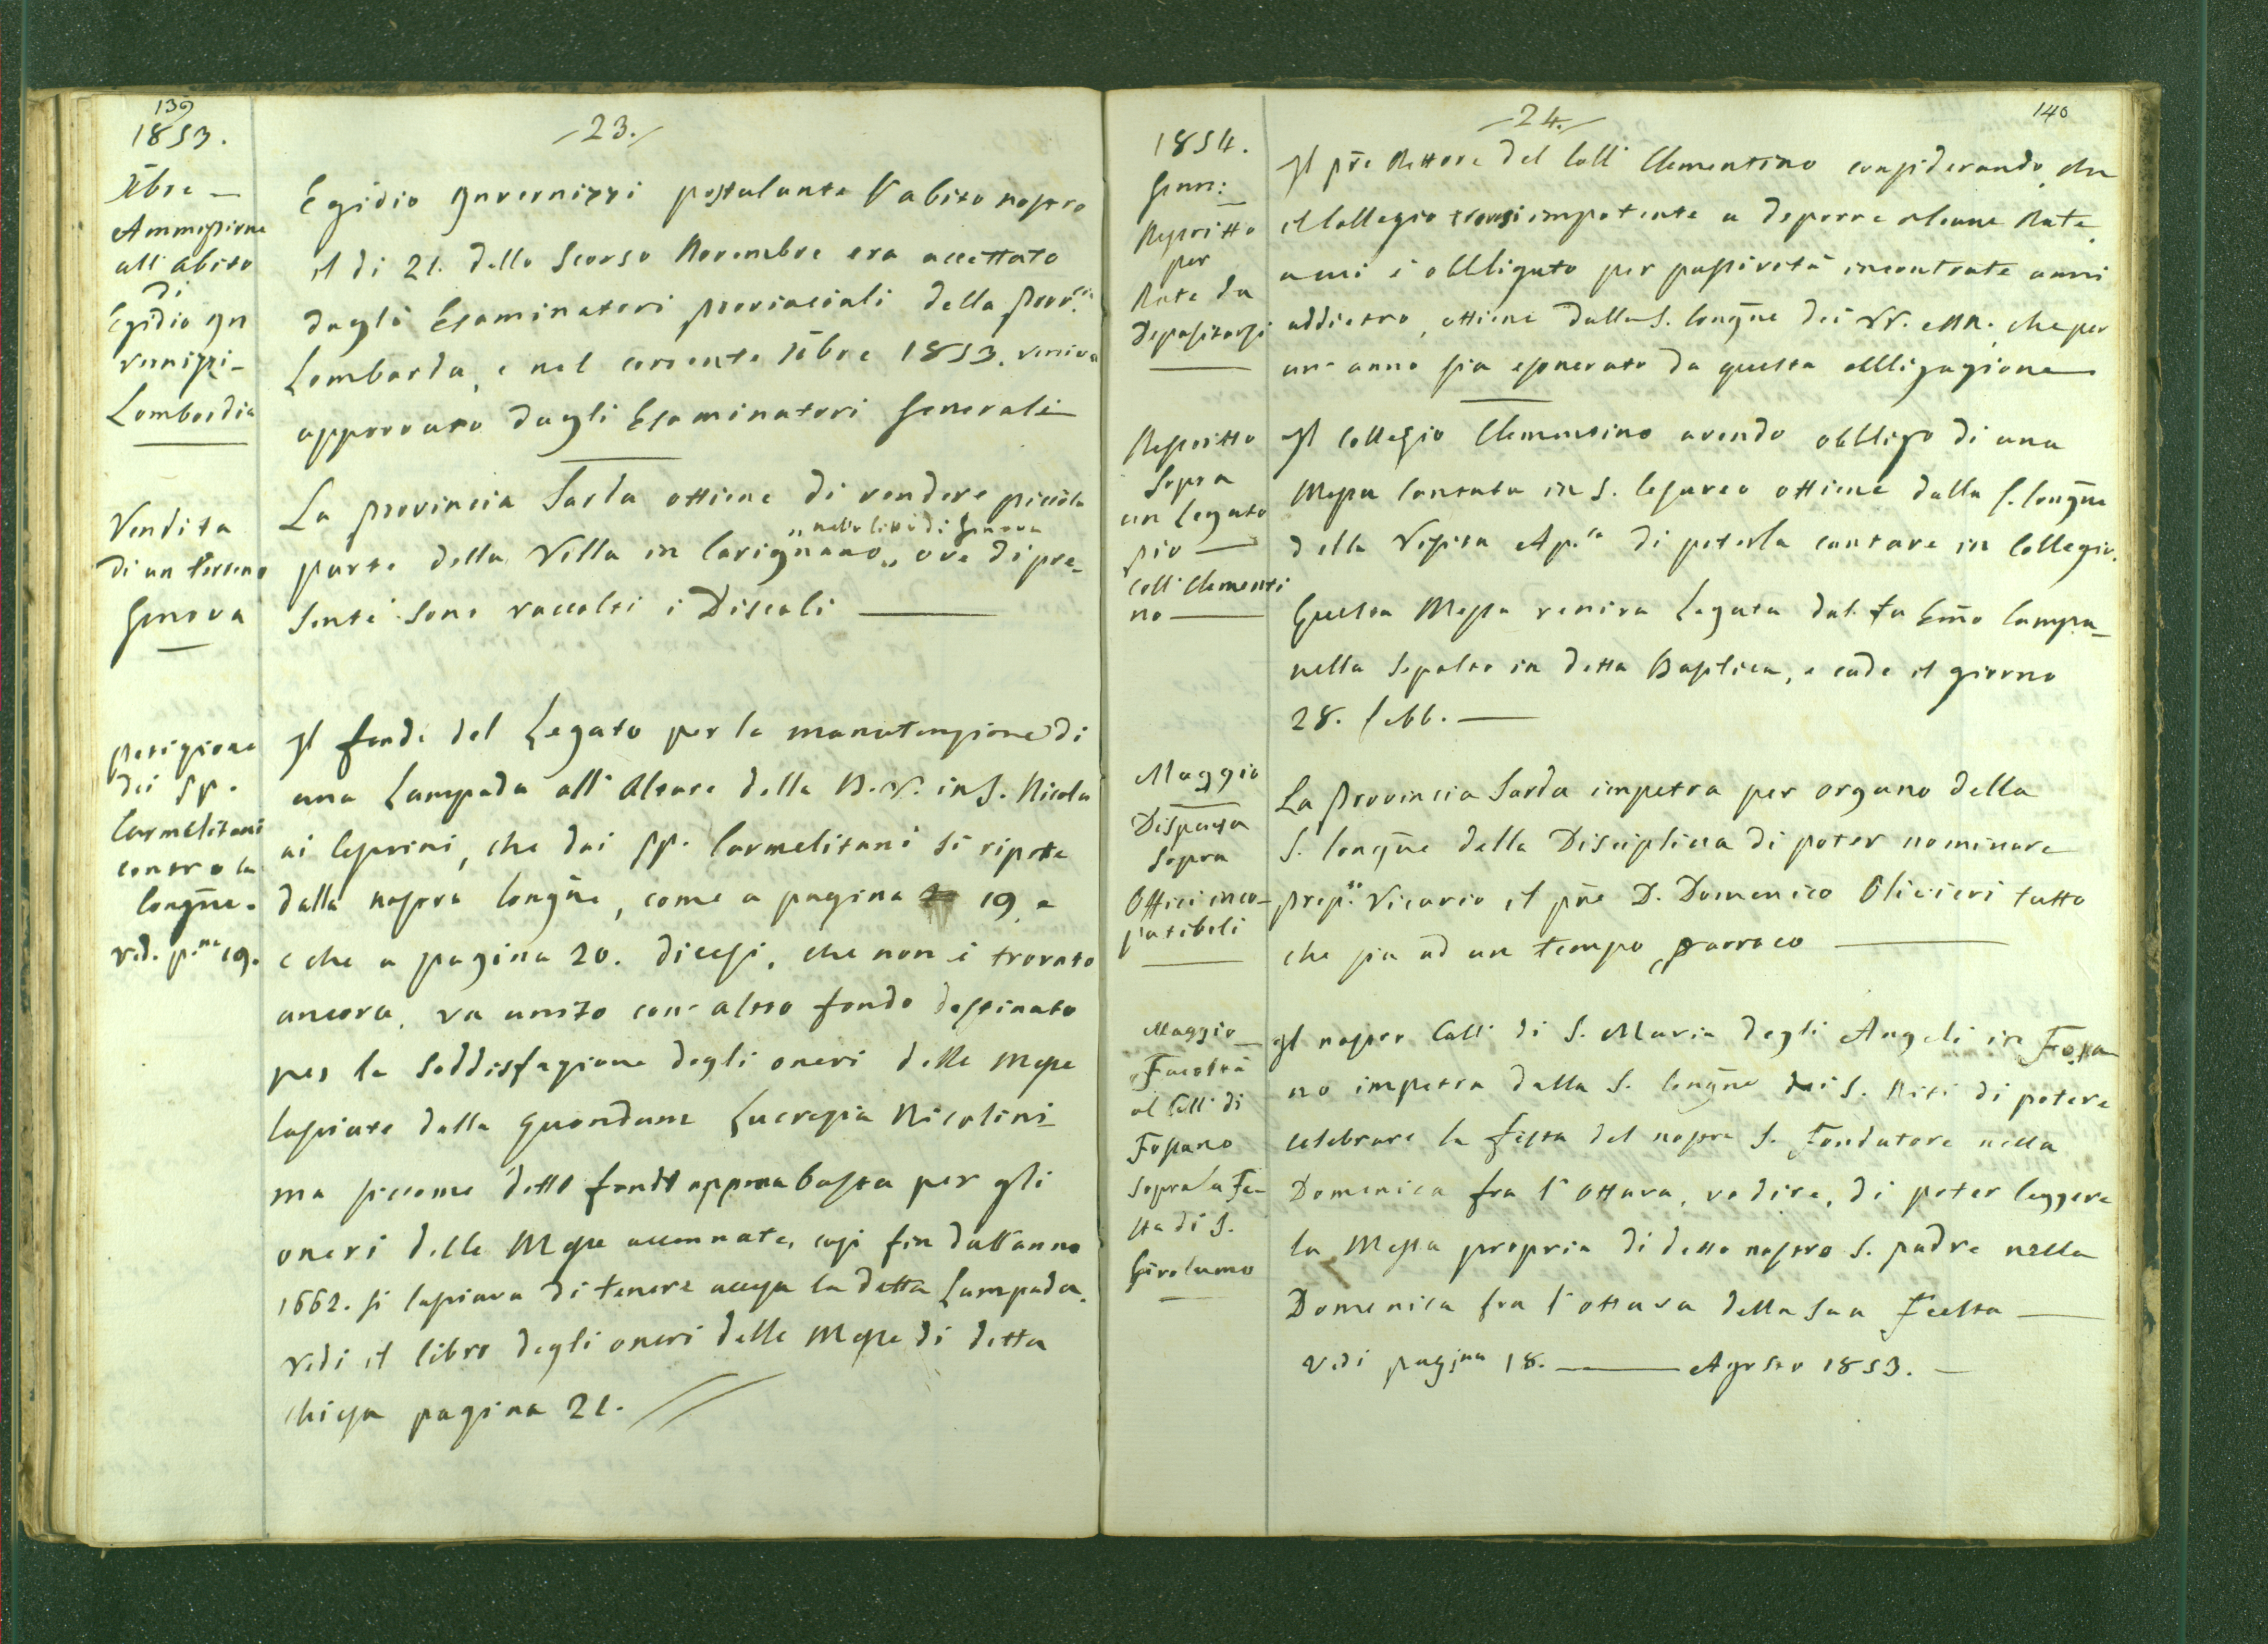 139
1853.
Xbre —
Ammessione
all' abito
di
Egidio In
vernizzi -
Lombardia
Vendita
di un terreno
Genova
Petizione
dei PP.
Carmelitani
contro la
Congñe.
ved. p.na 19.
23.
Egidio Invernizzi postulante l'abito nostro
il di 21. dello scorso Novembre era accettato
dagli Esaminatori provinciali della Prov.cia
Lombarda, e nel corrente Xbre 1853. veniva
approvato dagli Esaminatori Generali
La Provincia Sarda ottiene di vendere piccola
„ nella città di Genova
parte della Villa in Carignano „ ove di pre-
sente sono raccolti i Discoli —
Il fondo del Legato per la manutenzione di
una Lampada all' Altare della B.V. in S. Nicola
ai Cesarini, che dai PP. Carmelitani si ripete
dalla nostra Congñe, come a pagina 19 e
e che a pagina 20. dicesi, che non è trovato
ancora, va unito con altro fondo destinato
per la soddisfazione degli oneri delle Messe
lasciate dalla quondam Lucrezia Nicolini-
ma siccome detto fondo appena basta per gli
oneri delle Messe accennate, così fin dall'anno
1662. si lasciava di tenere accesa la detta Lampada.
Vedi il libro degli oneri delle Messe di detta
Chiesa pagina 21.
140
24.
1854.
Genn:
Rescritto
per
Rate da
Depositarsi
Rescritto
sopra
un Legato
pio —
Coll: Clementi
no —
Maggio
Dispensa
sopra
Offici inco-
patibili
Maggio —
Facoltà
al Coll: di
Fossano
sopra la Fe-
sta di S.
Girolamo
Il pr̃e Rettore del Coll: Clementino considerando, che
il Collegio trovasi impotente a deporre alcune Rate,
a cui è obbligato per passività incontrate anni
addietro, ottiene dalla S. Congñe dei VV. e RR. che per
un' anno sia esonerato da questa obbligazione
Il Collegio Clementino avendo obbligo di una
Messa cantata in S. Cesareo ottiene dalla S. Congñe
della Visita Ap.ca di poterla cantare in Collegio.
Questa Messa veniva legata dal fu Em̃o Campa-
nella sepolto in detta Basilica, e cade il giorno
28. febb. —
La Provincia Sarda impetra per organo della
S. Congñe della Disciplina di poter nominare
prep.to Vicario il pr̃e D. Domenico Olivieri tutto
che sia ad un tempo Parroco —
Il nostro Coll: di S. Maria degli Angeli in Fossa
no impetra dalla S. Congñe dei S. Riti di potere
celebrare la festa del nostro S. Fondatore nella
Domenica fra l' Ottava, vo dire, di poter leggere
la Messa propria di detto nostro S. padre nella
Domenica fra l' ottava della sua Festa —
Vedi pagina 18. — Agosto 1853. —